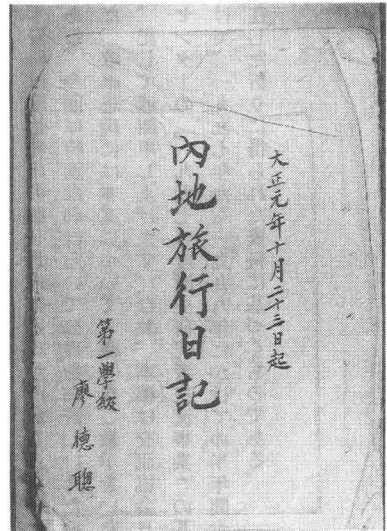 大正元年十月二十三日起
內地旅行日記
第一學級
廖德聰